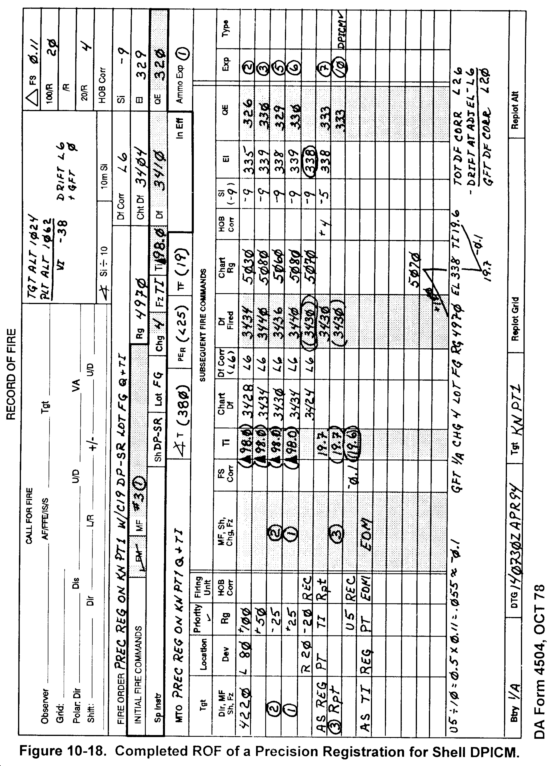 RECORD OF FIRE
CALL FOR FIRE
Observer AF/FFE/IS/S Tgt
Grid:
Polar: Dir Dis U/D VA
Shift: Dir L/R +/- U/D
TGT ALT 1024
PLT ALT 1062
VI -38
DRIFT L6
+ GFT Ø
∡ Si ÷ 10 10m Si
△ FS Ø.11
100/R 2Ø
/R
20/R 4
HOB Corr
FIRE ORDER PREC REG ON KN PT1 W/C19 DP-SR LOT FG Q+TI Df Corr L6 Si -9
INITIAL FIRE COMMANDS FM MF #3① Rg 497Ø Cht Df 34Ø4 El 329
Sp Instr Sh DP-SR Lot FG Chg 4 Fz TI Ti 98.Ø Df 341Ø QE 32Ø
MTO PREC REG ON KN PT1 Q+TI ∡T (38Ø) PER (<25) TF (19) In Eff Ammo Exp ①
SUBSEQUENT FIRE COMMANDS
Tgt Location Priority Firing Unit
Dir, MF Sh, Fz Dev Rg HOB Corr MF, Sh, Chg, Fz FS Corr Ti Chart Df Df Corr (L6) Df Fired Chart Rg HOB Corr Si (-9) El QE Exp Type
422Ø L 8Ø +1ØØ ▲98.Ø 3428 L6 3434 5Ø3Ø -9 335 326 ②
+5Ø ▲98.Ø 3434 L6 344Ø 5Ø8Ø -9 339 33Ø ③
② -25 ② ▲98.Ø 343Ø L6 3436 5Ø6Ø -9 338 329 ⑤
① +25 ① ▲98.Ø 3434 L6 344Ø 5Ø8Ø -9 339 33Ø ⑥
R 2Ø -2Ø REC 3424 L6 (343Ø) 5Ø7Ø -9 (338)
AS REG PT TI Rpt 19.7 343Ø +4 -5 338 333 ⑦
③ Rpt ③ (19.7) (343Ø) 333 ⑩ DPICM
U5 REC -Ø.1 (19.6)
AS TI REG PT EOMI EOM
5Ø7Ø
U5÷1Ø = Ø.5 X Ø.11 = .Ø55 ≈ -Ø.1
GFT 1/A CHG 4 LOT FG RG 497Ø EL 338 TI 19.6
19.7 -Ø.1
TOT DF CORR L26
- DRIFT AT ADJ EL - L6
GFT DF CORR L2Ø
Btry 1/A DTG 14Ø73ØZ APR 94 Tgt KN PT1 Replot Grid Replot Alt
DA Form 4504, OCT 78
Figure 10-18. Completed ROF of a Precision Registration for Shell DPICM.